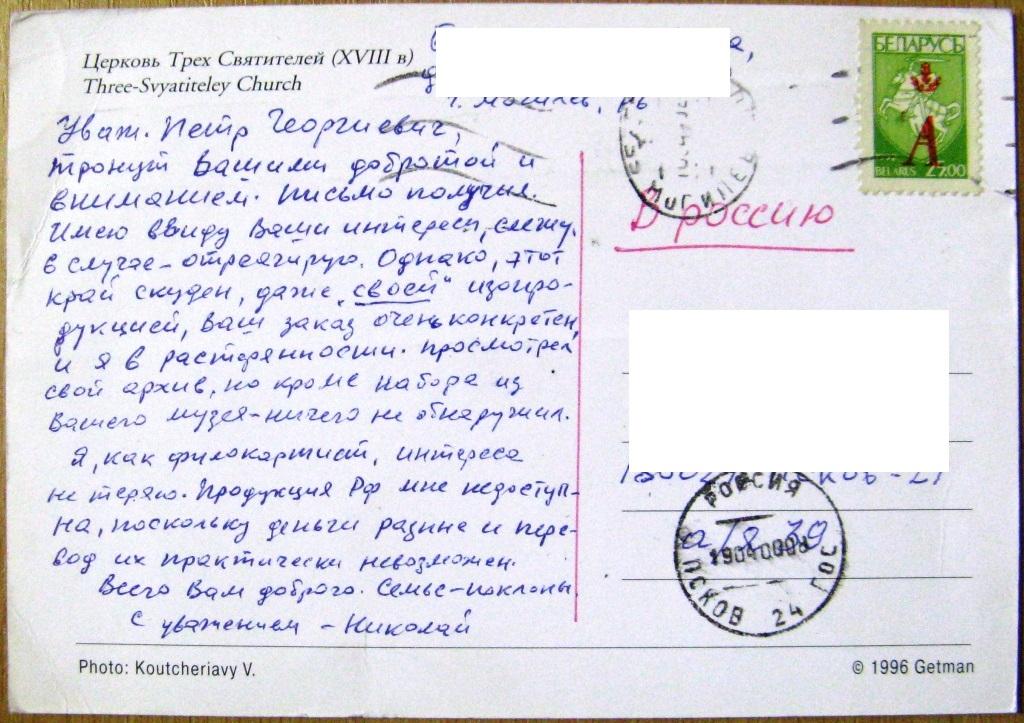 Церковь Трех Святителей (XVIII в)
Three-Svyatiteley Church
г. Могилев, РБ
БЕЛАРУСЬ
A
BELARUS 27.00
МОГИЛЕВ
Уваж. Петр Георгиевич,
тронут Вашими добротой и
вниманием. Письмо получил.
Имею ввиду Ваши интересы, слежу.
в случае – отреагирую. Однако, этот
край скуден, даже „своей" изопро-
дукцией, Ваш заказ очень конкретен,
и я в растерянности. Просмотрел
свой архив, но кроме набора из
Вашего музея – ничего не обнаружил.
Я, как филокартист, интереса
не теряю. Продукция РФ мне недоступ-
на, поскольку деньги разные и пере-
вод их практически невозможен.
Всего Вам доброго. Семье – поклоны.
С уважением – Николай
В Россию
а/я 39
РОССИЯ
ПСКОВ 24 ГОС
Photo: Koutcheriavy V.
© 1996 Getman